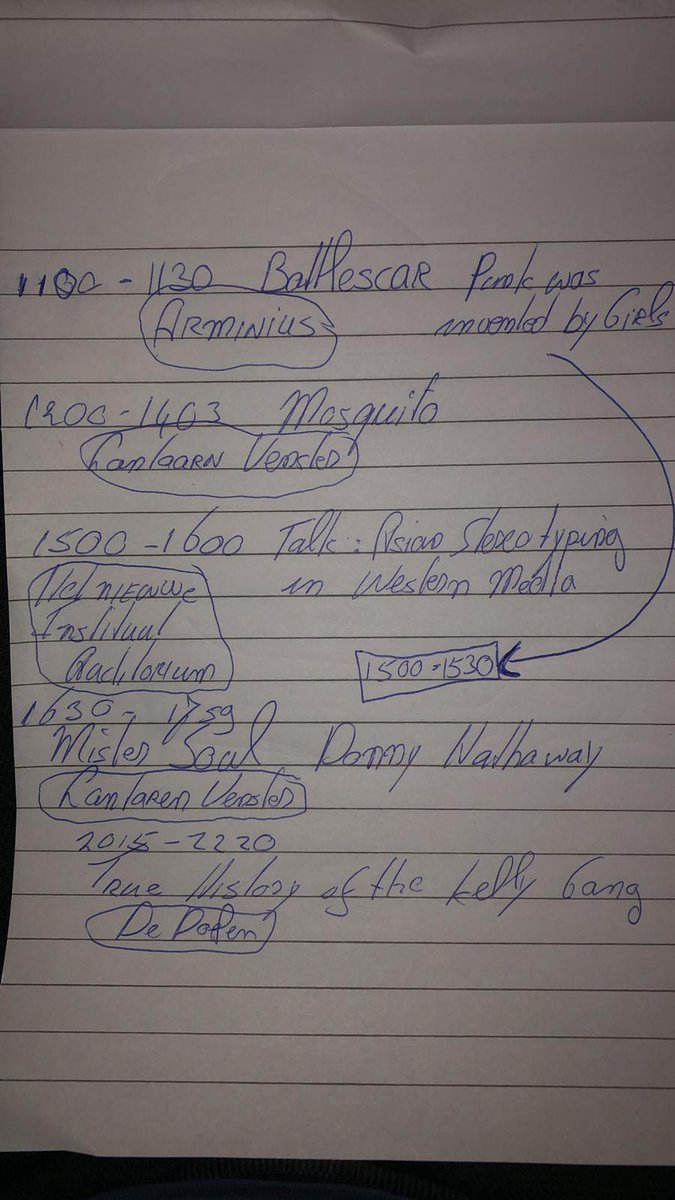 1100 - 1130 Battlescar Punk was
ARMINIUS invented by Girls
1200 - 1403 Mosquito
Lantaarn Venster
1500 - 1600 Talk : Asian Stereotyping
Het NIEUWe in Western Media
Instituut
Auditorium 1500 - 1530
1630 - 1759
Mister Soul Donny Hathaway
Lantaren Venster
2015 - 2220
True History of the Kelly Gang
De Doelen